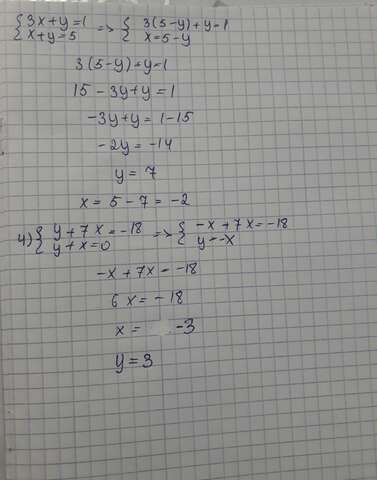 {3x+y=1 => {3(5-y)+y=1
{x+y=5 {x=5-y
3(5-y)+y=1
15-3y+y=1
-3y+y=1-15
-2y=-14
y=7
x=5-7=-2
4) {y+7x=-18 => {-x+7x=-18
{y+x=0 {y=-x
-x+7x=-18
6x=-18
x= -3
y=3